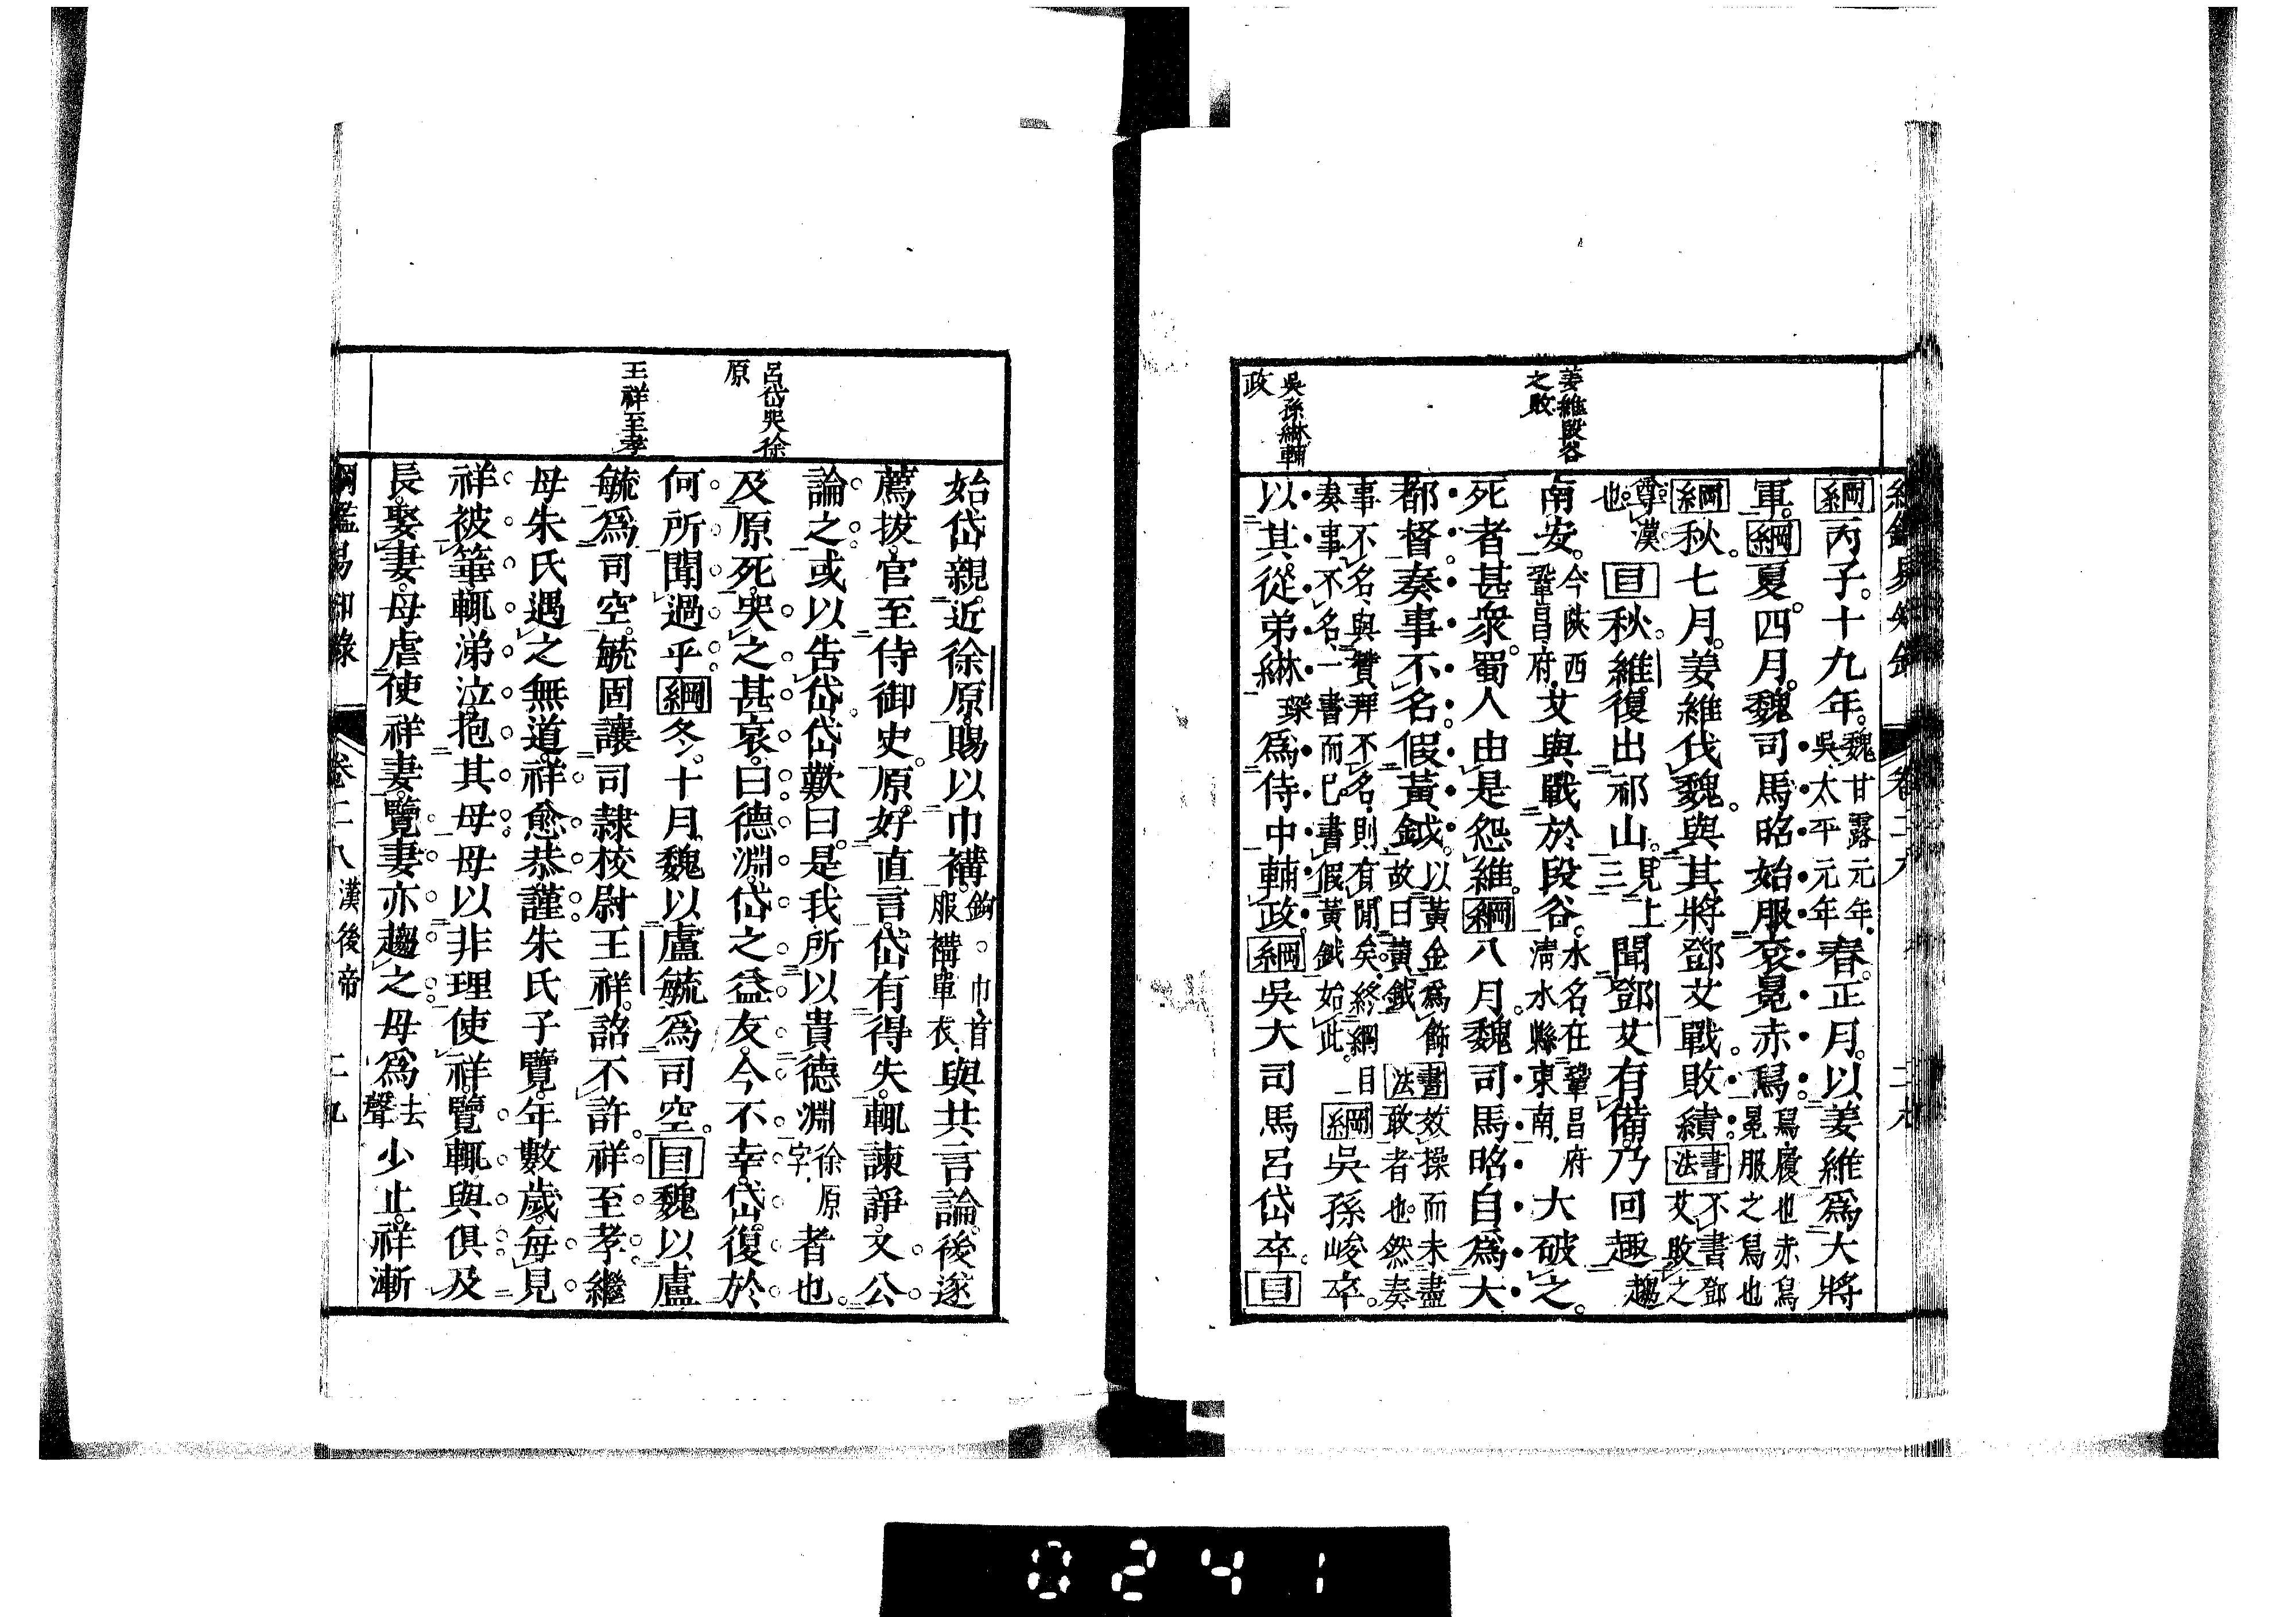 姜維段谷
之敗
吳孫綝輔
政
綱丙子。十九年。魏甘露元年。吳太平元年春。正月。以姜維爲大將
軍。綱夏。四月。魏司馬昭始服袞冕赤舄。舄。履也。赤舄冕服之舄也
綱秋。七月。姜維伐魏。與其將鄧艾戰。敗績。書法不書鄧艾敗之
尊漢也。目秋。維復出祁山。見上三聞鄧艾有備。乃回趨趨
南安。今陝西鞏昌府。艾與戰於段谷。水名在鞏昌府淸水縣東南。大破之。
死者甚衆。蜀人由是怨維。綱八月。魏司馬昭自爲大
都督。奏事不名。假黃鉞。以黃金爲飾故曰黃鉞。書法效操而未盡敢者也。然奏
事不名。與贊拜不名。則有閒矣。終綱目奏事不名。一書而已。書假黃鉞始此。綱吳孫峻卒。
以其從弟綝琛爲侍中輔政。綱吳大司馬呂岱卒。目
呂岱哭徐
原
王祥至孝
始岱親近徐原。賜以巾褠。鉤。巾。首服褠單衣。與共言論。後遂
薦拔。官至侍御史。原好直言。岱有得失。輒諫諍。又公
論之。或以告岱。岱歎曰。是我所以貴德淵徐原字。者也。
及原死。哭之甚哀。曰德淵。岱之益友。今不幸。岱復於
何所聞過乎。綱冬。十月。魏以盧毓爲司空。目魏以盧
毓爲司空。毓固讓司隸校尉王祥。詔不許。祥至孝。繼
母朱氏遇之無道。祥愈恭謹。朱氏子覽。年數歲。每見
祥被箠。輒涕泣。抱其母。母以非理使祥。覽輒與俱。及
長。娶妻。母虐使祥妻。覽妻亦趨之。母爲去聲少止。祥漸
綱鑑易知錄 卷二八 漢後帝 二九